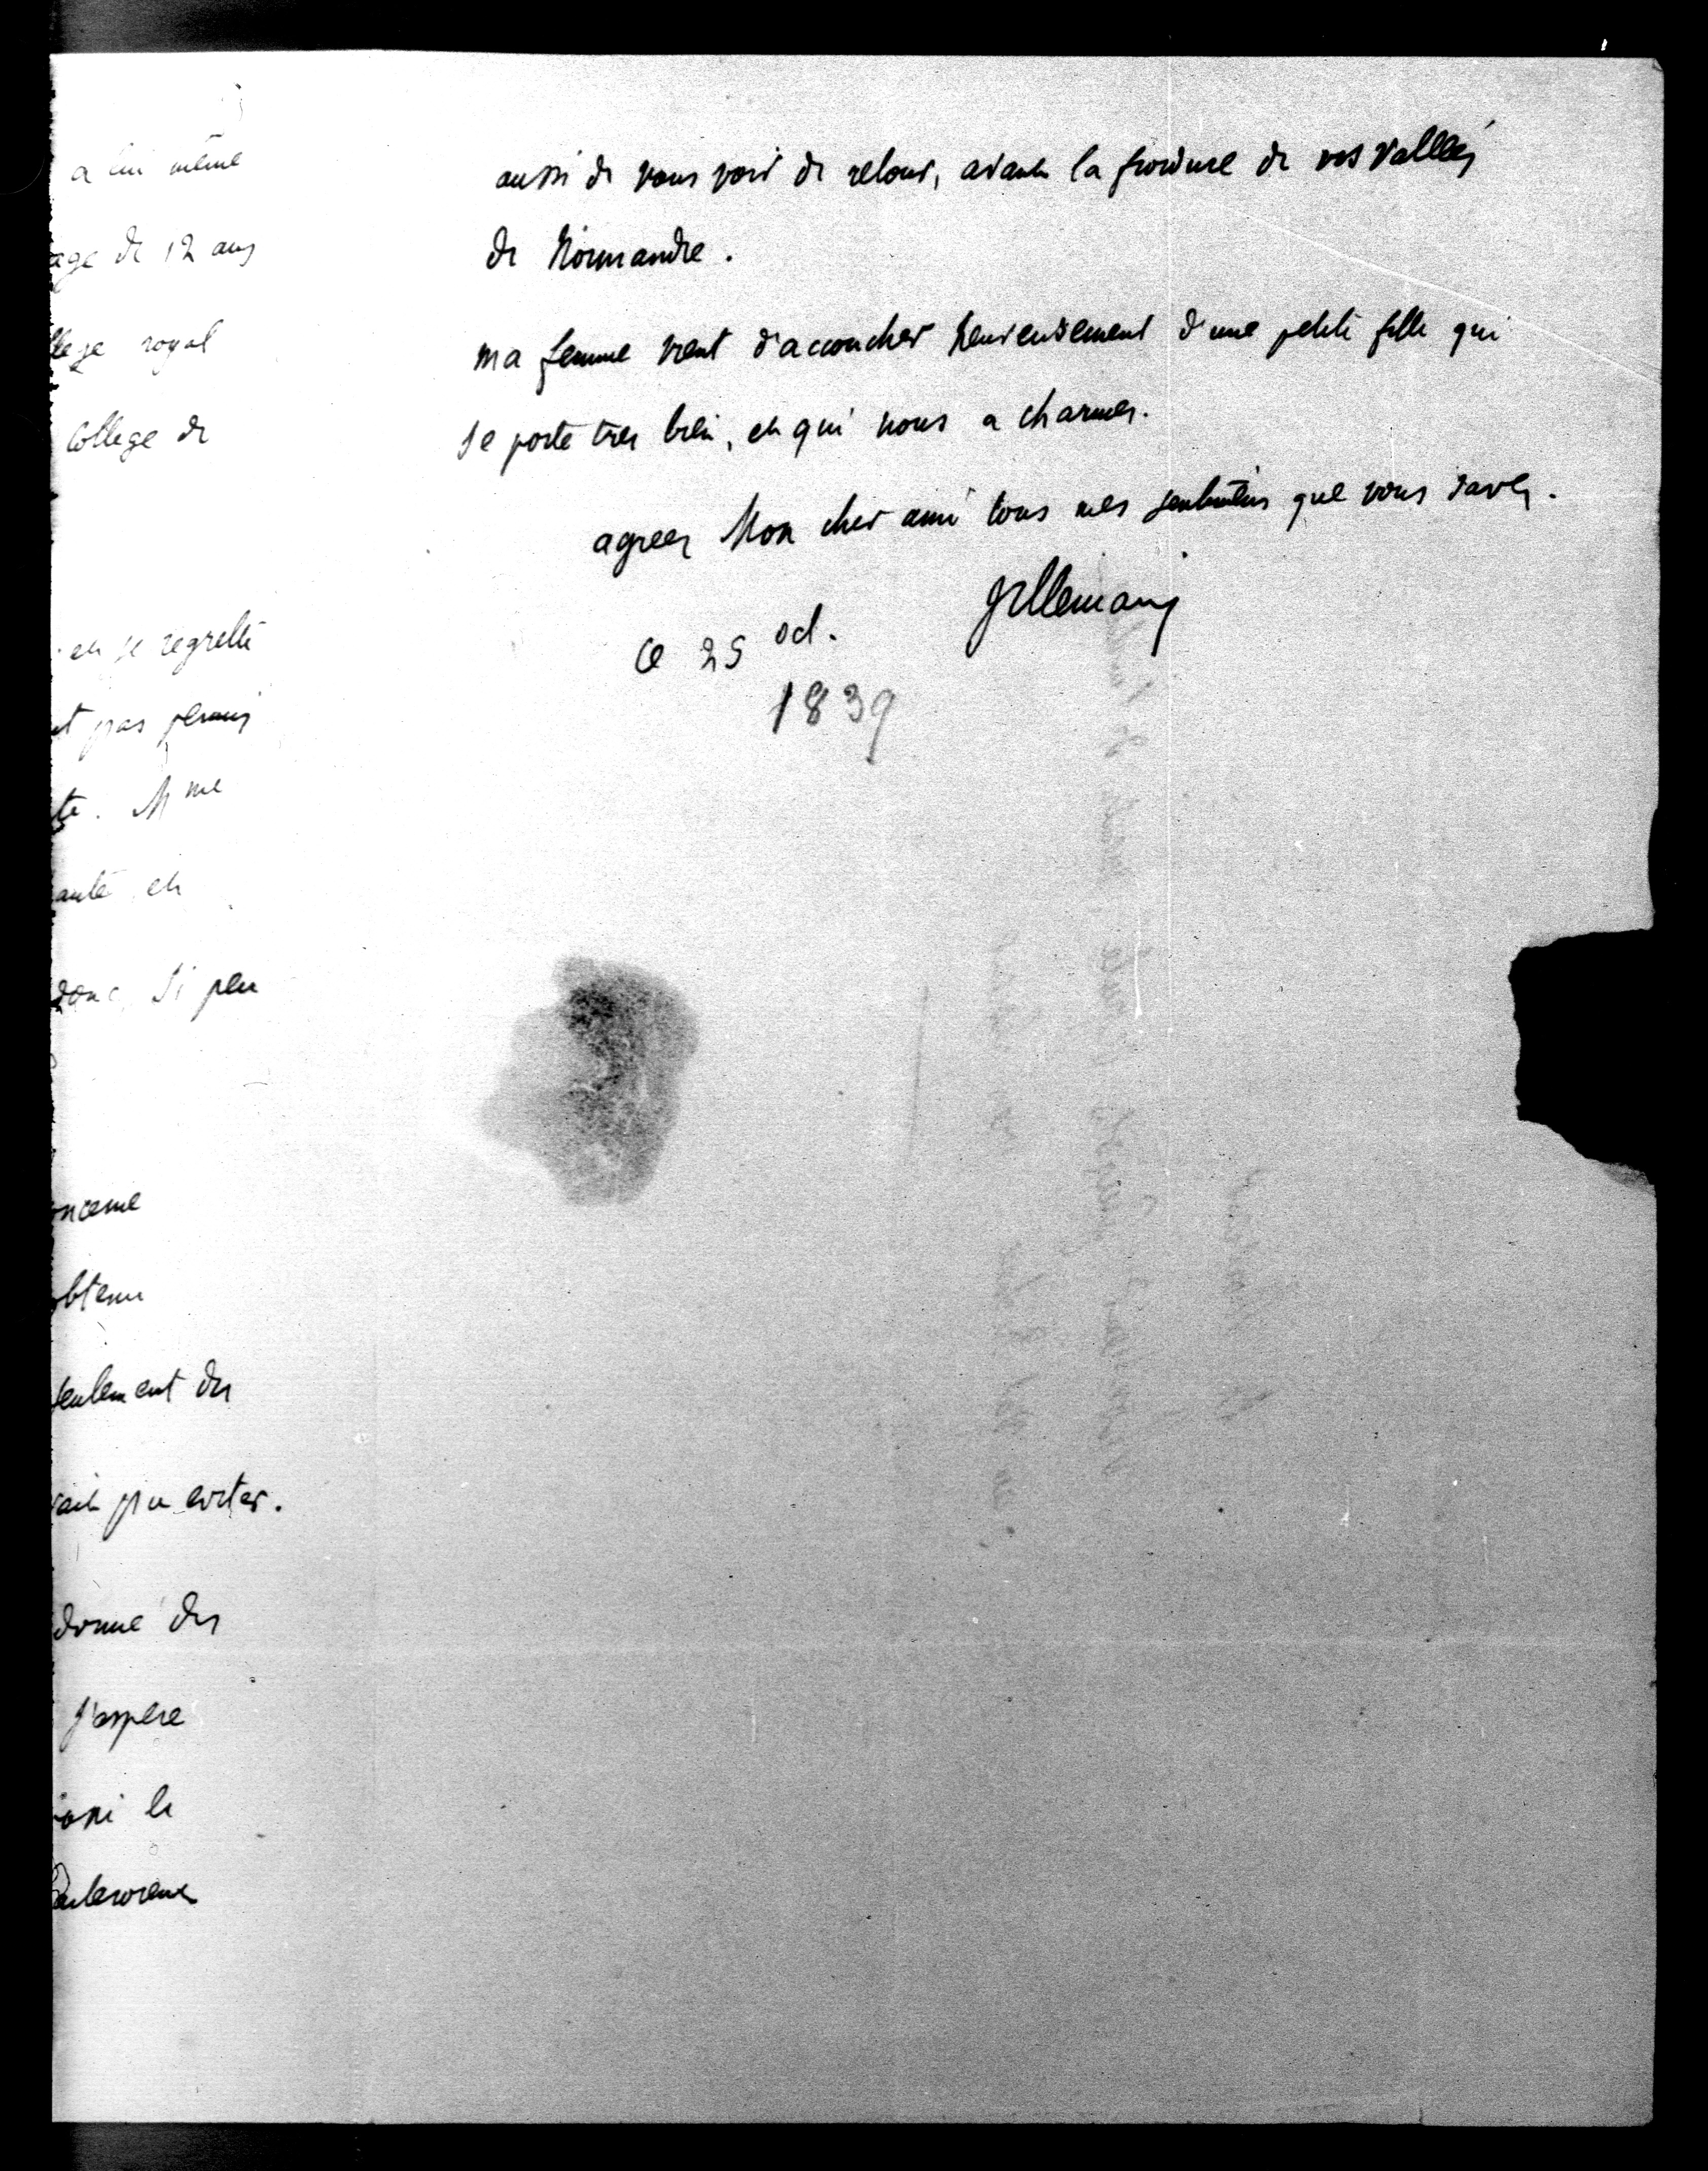 a lui même
age de 12 ans
llege royal
College de
et je regrette
nt pas permis
te. Mme
santé et
donc si peu
oncerne
obtenu
seulement des
vait pu eviter.
donné des
J'espere
aussi de vous voir de retour, avant la froidure de vos vallées
de Normandie.
ma femme vient d'accoucher heureusement d'une petite fille qui
se porte tres bien, et qui nous a charmés.
agreez Mon cher ami tous mes sentimens que vous savez.
Villemain
ce 25 oct.
1839